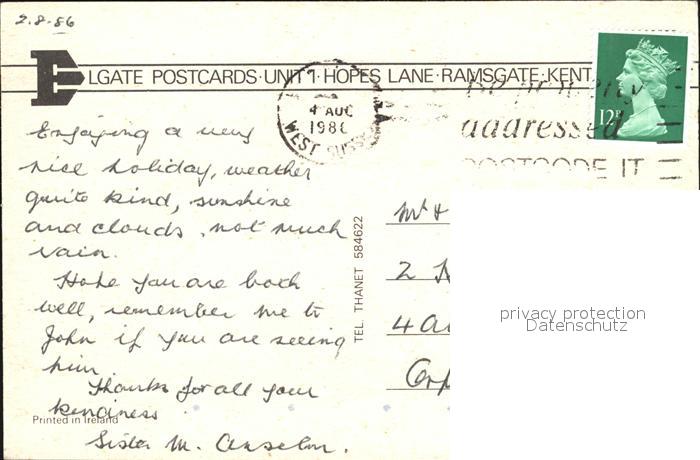 2.8.86
ELGATE POSTCARDS · UNIT 1 · HOPES LANE · RAMSGATE · KENT
4 AUG
1986
WEST SUSSEX
addressed
POSTCODE IT
12P
Enjoying a very
nice holiday, weather
quite kind, sunshine
and clouds, not much
rain.
Hope you are both
well, remember me to
John if you are seeing
him.
Thanks for all your
kindness
Sister M. Anselm.
Printed in Ireland
TEL. THANET 584622
Mr &
2
4
privacy protection
Datenschutz